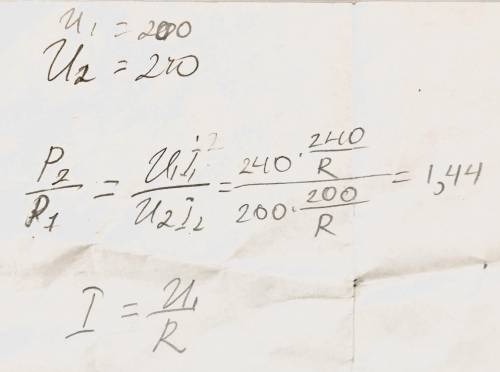 U₁ = 200
U₂ = 240
P₂/P₁ = U₁I₁²/U₂I₂ = (240 · 240/R)/(200 · 200/R) = 1,44
I = U₁/R